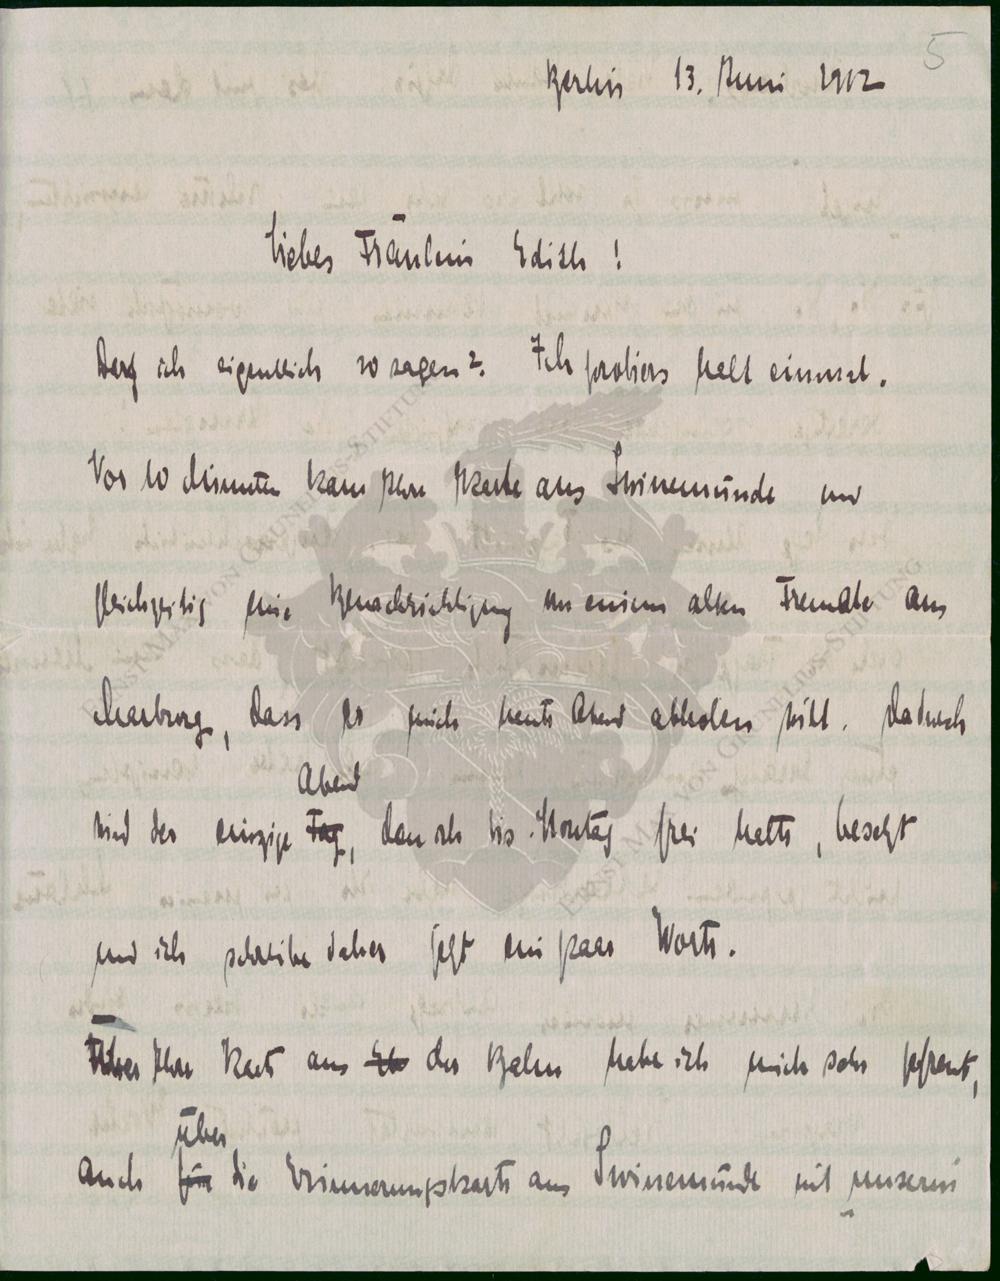 5
Berlin 13. Juni 1912
Liebes Fräulein Edith!
Darf ich eigentlich so sagen?. Ich probiers halt einmal.
Vor 10 Minuten kam Ihre Karte aus Swinemünde und
gleichzeitig eine Benachrichtigung von einem alten Freunde aus
Marburg, dass er mich heute Abend abholen will. Dadurch
Abend
wird der einzige Tag, den ich bis Montag frei hatte, besetzt
und ich schreibe daher jetzt ein paar Worte.
Über Ihre Karte aus der Bahn habe ich mich sehr gefreut,
über
auch für die Erinnerungskarte aus Swinemünde mit unserm
ERNST-MAX-VON-GRUNELIUS-STIFTUNG
ERNST-MAX-VON-GRUNELIUS-STIFTUNG